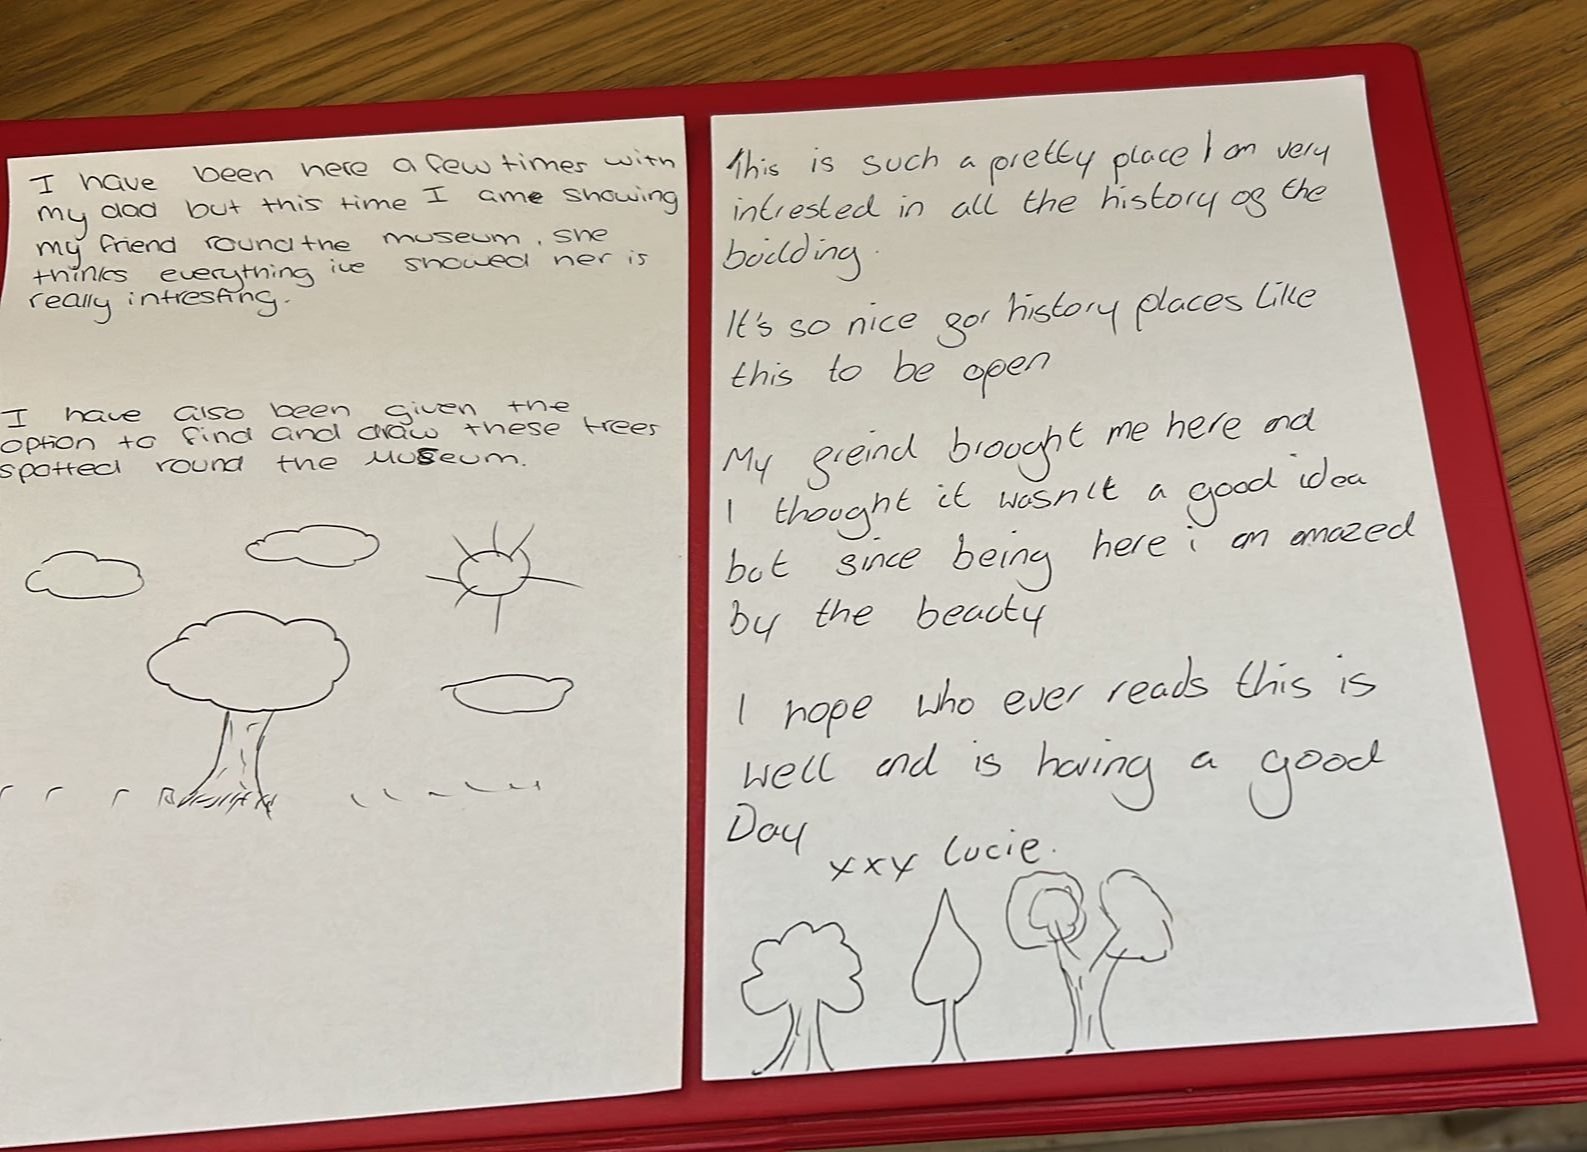 I have been here a few times with
my dad but this time I ame showing
my friend round the museum, she
thinks everything ive showed her is
really intresting.
I have also been given the
option to find and draw these trees
spotted round the Museum.
This is such a pretty place I am very
intrested in all the history of the
building.
It's so nice for history places like
this to be open
My freind brought me here and
I thought it wasn't a good idea
but since being here i am amazed
by the beauty
I hope who ever reads this is
well and is having a good
Day
xxx Lucie.